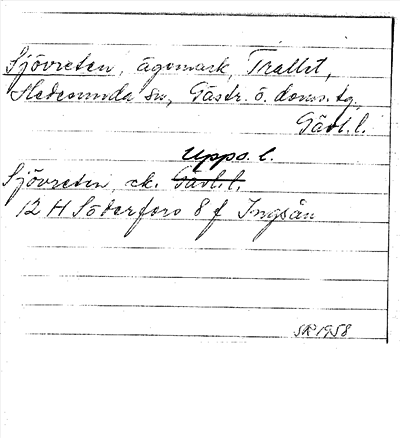 Sjövreten, ägomark, Trallit,
Hedesunda sn, Gästr. ö. doms.tg.
Gävl. l.
Upps. l.
Sjövreten, ek. Gävl. l.
12 H Söderfors 8 f Ingsån
SR 1958